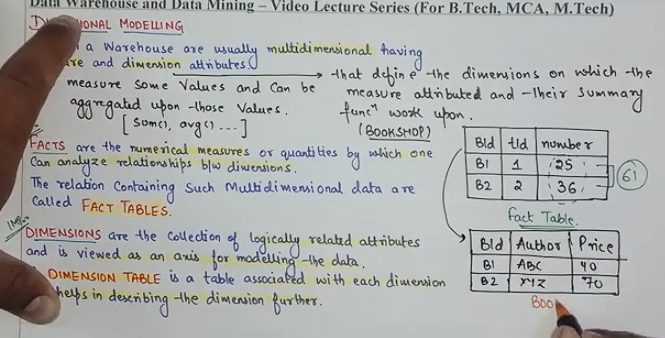 Data Warehouse and Data Mining – Video Lecture Series (For B.Tech, MCA, M.Tech)
MODELLING
a Warehouse are usually multidimensional having
and dimension attributes.
measure some values and can be
aggregated upon those values.
[sum(), avg() ...]
that define the dimensions on which the
measure attributed and their summary
funcⁿ work upon.
(BOOKSHOP)
FACTS are the numerical measures or quantities by which one
can analyze relationships b/w dimensions.
The relation containing such Multidimensional data are
called FACT TABLES.
BId tId number
B1 1 25
B2 2 36
61
Fact Table.
IMP
DIMENSIONS are the collection of logically related attributes
and is viewed as an axis for modelling the data.
DIMENSION TABLE is a table associated with each dimension
helps in describing the dimension further.
BId Author Price
B1 ABC 40
B2 XYZ 70
Boo